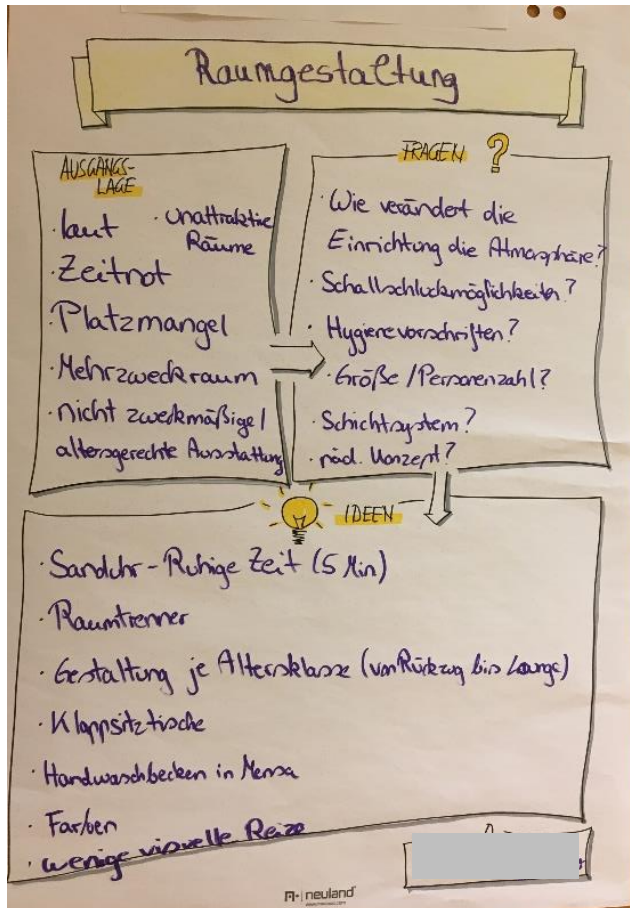 Raumgestaltung
AUSGANGS-
LAGE
· laut · unattraktive
Räume
· Zeitnot
· Platzmangel
· Mehrzweckraum
· nicht zweckmäßige/
altersgerechte Ausstattung
FRAGEN ?
· Wie verändert die
Einrichtung die Atmosphäre?
· Schallschluckmöglichkeiten?
· Hygienevorschriften?
· Größe/Personenzahl?
· Schichtsystem?
· päd. Konzept?
IDEEN
· Sanduhr - Ruhige Zeit (5 Min)
· Raumtrenner
· Gestaltung je Altersklasse (von Rückzug bis Lounge)
· Klappsitztische
· Handwaschbecken in Mensa
· Farben
· wenige visuelle Reize
neuland